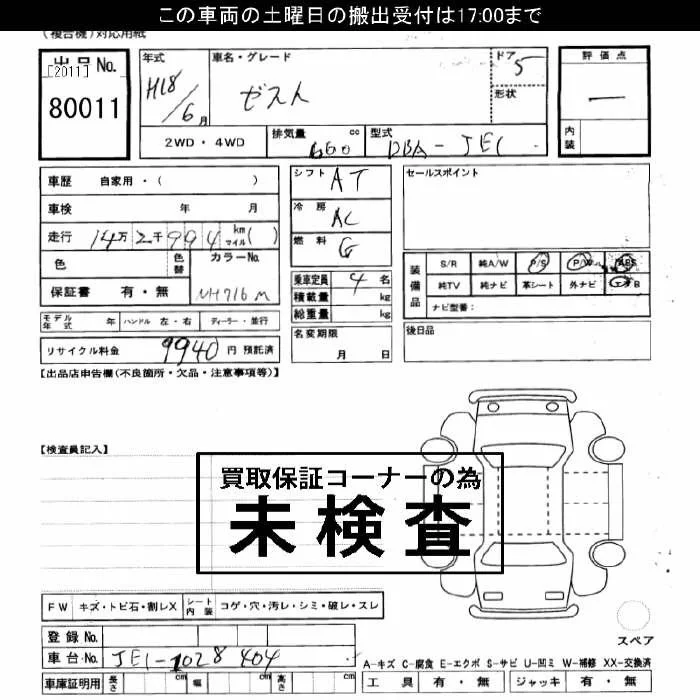 この車両の土曜日の搬出受付は17:00まで
(複合機)対応用紙
出品No. [2011] 80011
年式 H18/6月
車名・グレード ゼスト
ドア 5
形状
評価点 —
内装
2WD・4WD
排気量 660 cc
型式 DBA-JE1
車歴 自家用・( )
車検 年 月
走行 14万2千994 km マイル( )
色 色替 カラーNo.
保証書 有・無 NH716M
シフト AT
冷房 AC
燃料 G
セールスポイント
装備品 S/R 純A/W P/S P/W ABS
純TV 純ナビ 革シート 外ナビ エアB
ナビ型番:
乗車定員 4名
積載量 kg
総重量 kg
モデル年式 年 ハンドル 左・右 ディーラー・並行
名変期限 月 日
後日品
リサイクル料金 9940円 預託済
【出品店申告欄(不良箇所・欠品・注意事項等)】
【検査員記入】
買取保証コーナーの為
未検査
FW キズ・トビ石・割レX シート内装 コゲ・穴・汚レ・シミ・破レ・スレ
スペア
登録No.
車台No. JE1-1028404
A-キズ C-腐食 E-エクボ S-サビ U-凹ミ W-補修 XX-交換済
車庫証明用 長さ cm 幅 cm 高さ cm
工具 有・無 ジャッキ 有・無